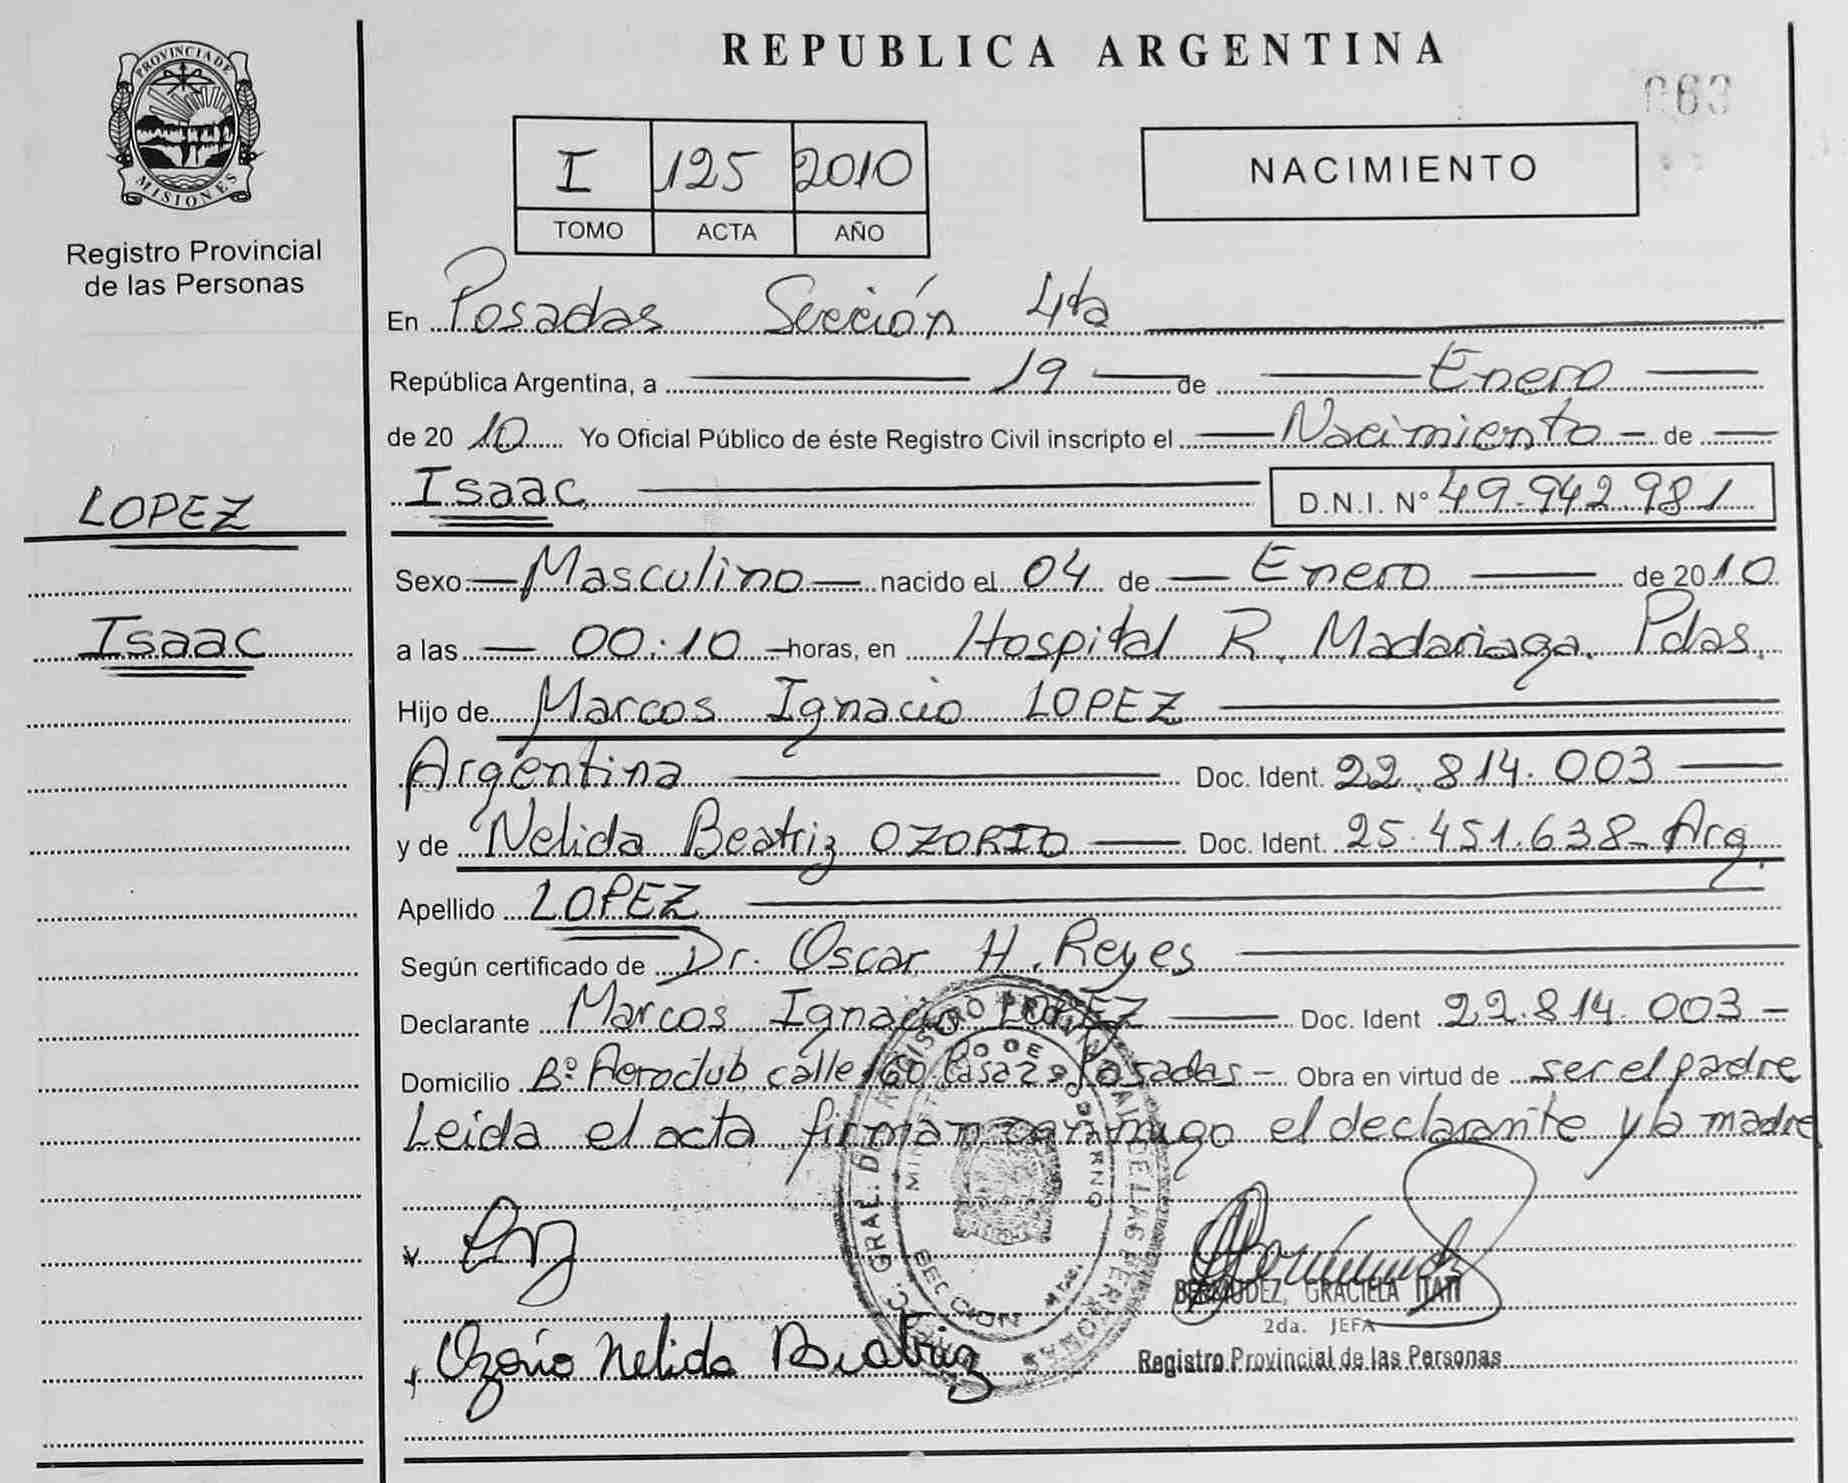 REPUBLICA ARGENTINA
063
PROVINCIA DE MISIONES
Registro Provincial
de las Personas
I 125 2010
TOMO ACTA AÑO
NACIMIENTO
LOPEZ
Isaac
En Posadas Sección 4ta
República Argentina, a 19 de Enero
de 2010 Yo Oficial Público de éste Registro Civil inscripto el Nacimiento de
Isaac D.N.I. Nº 49.942.981
Sexo Masculino nacido el 04 de Enero de 2010
a las 00:10 horas, en Hospital R. Madariaga. Pdas.
Hijo de Marcos Ignacio LOPEZ
Argentina Doc. Ident. 22.814.003
y de Nelida Beatriz OZORIO Doc. Ident. 25.451.638 Arg.
Apellido LOPEZ
Según certificado de Dr. Oscar H. Reyes
Declarante Marcos Ignacio LOPEZ Doc. Ident 22.814.003
Domicilio Bº Aeroclub calle 160 Casa Posadas Obra en virtud de ser el padre
Leida el acta firman conmigo el declarante y la madre
BERMUDEZ, GRACIELA ITATI
2da. JEFA
Ozorio Nelida Beatriz
Registro Provincial de las Personas